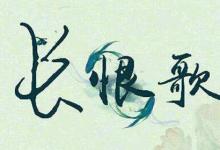 长恨歌